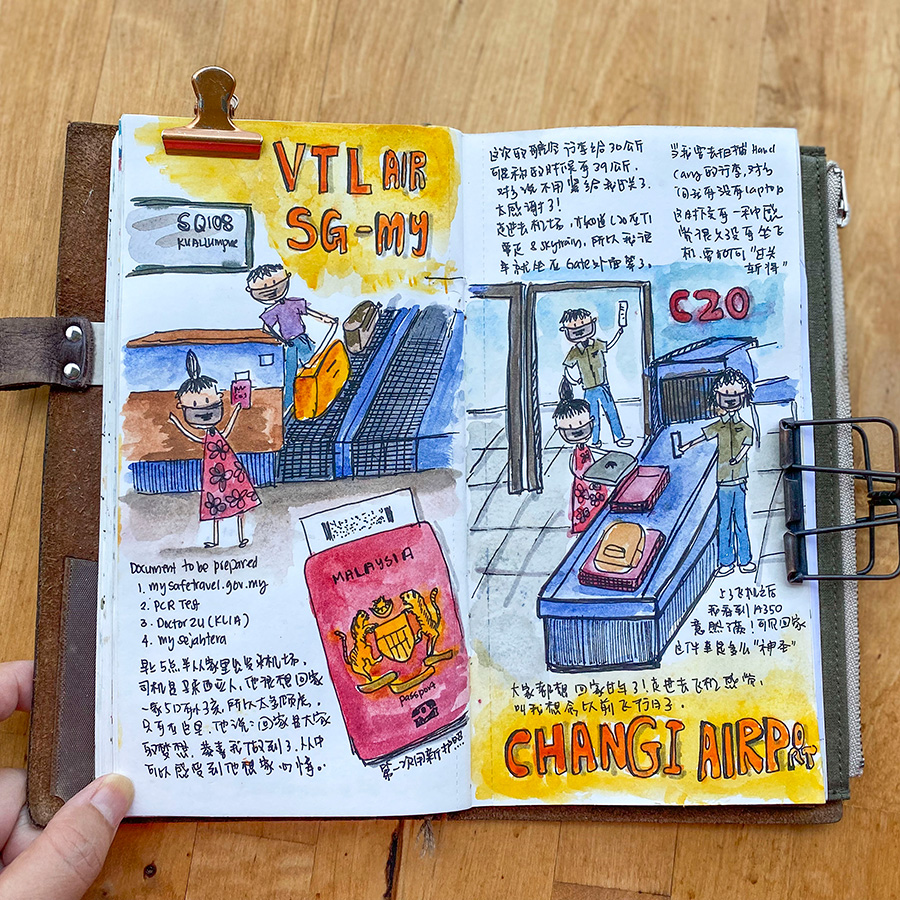 VTL AIR
SG-MY
SQ108
KUALLUMPUR
Document to be prepared
1. mysafetravel.gov.my
2. PCR Test
3. Doctor2U (KLIA)
4. mysejahtera
早5点半从家里出发来机场,
司机是马来西亚人,他很想回家
一家5口 3天,所以太多顾虑,
只好在这里,他说:回家是大家
的梦想,恭喜我做到了,从中
可以感受到他想家心情。
MALAYSIA
passport
第一次用新护照...
这次的 行李给30公斤
可是我的 有39公斤.
对方说不用紧给我过关了.
太感谢了!
走进去机场,才知道C20在T1
要走 & Skytrain,所以我很
早就坐在Gate外面等了.
当我要去扫描Hand
Carry的行李,对方
问我有没有laptop
这时候有一种感
觉很久没有坐飞
机,要如何"过关
斩将"
C20
上了飞机之后
我看到A350
可见回家
这件事是多么"神圣"
大家都想回家 了!走进去飞机感觉,
叫我想念以前飞行日子.
CHANGI AIRPORT